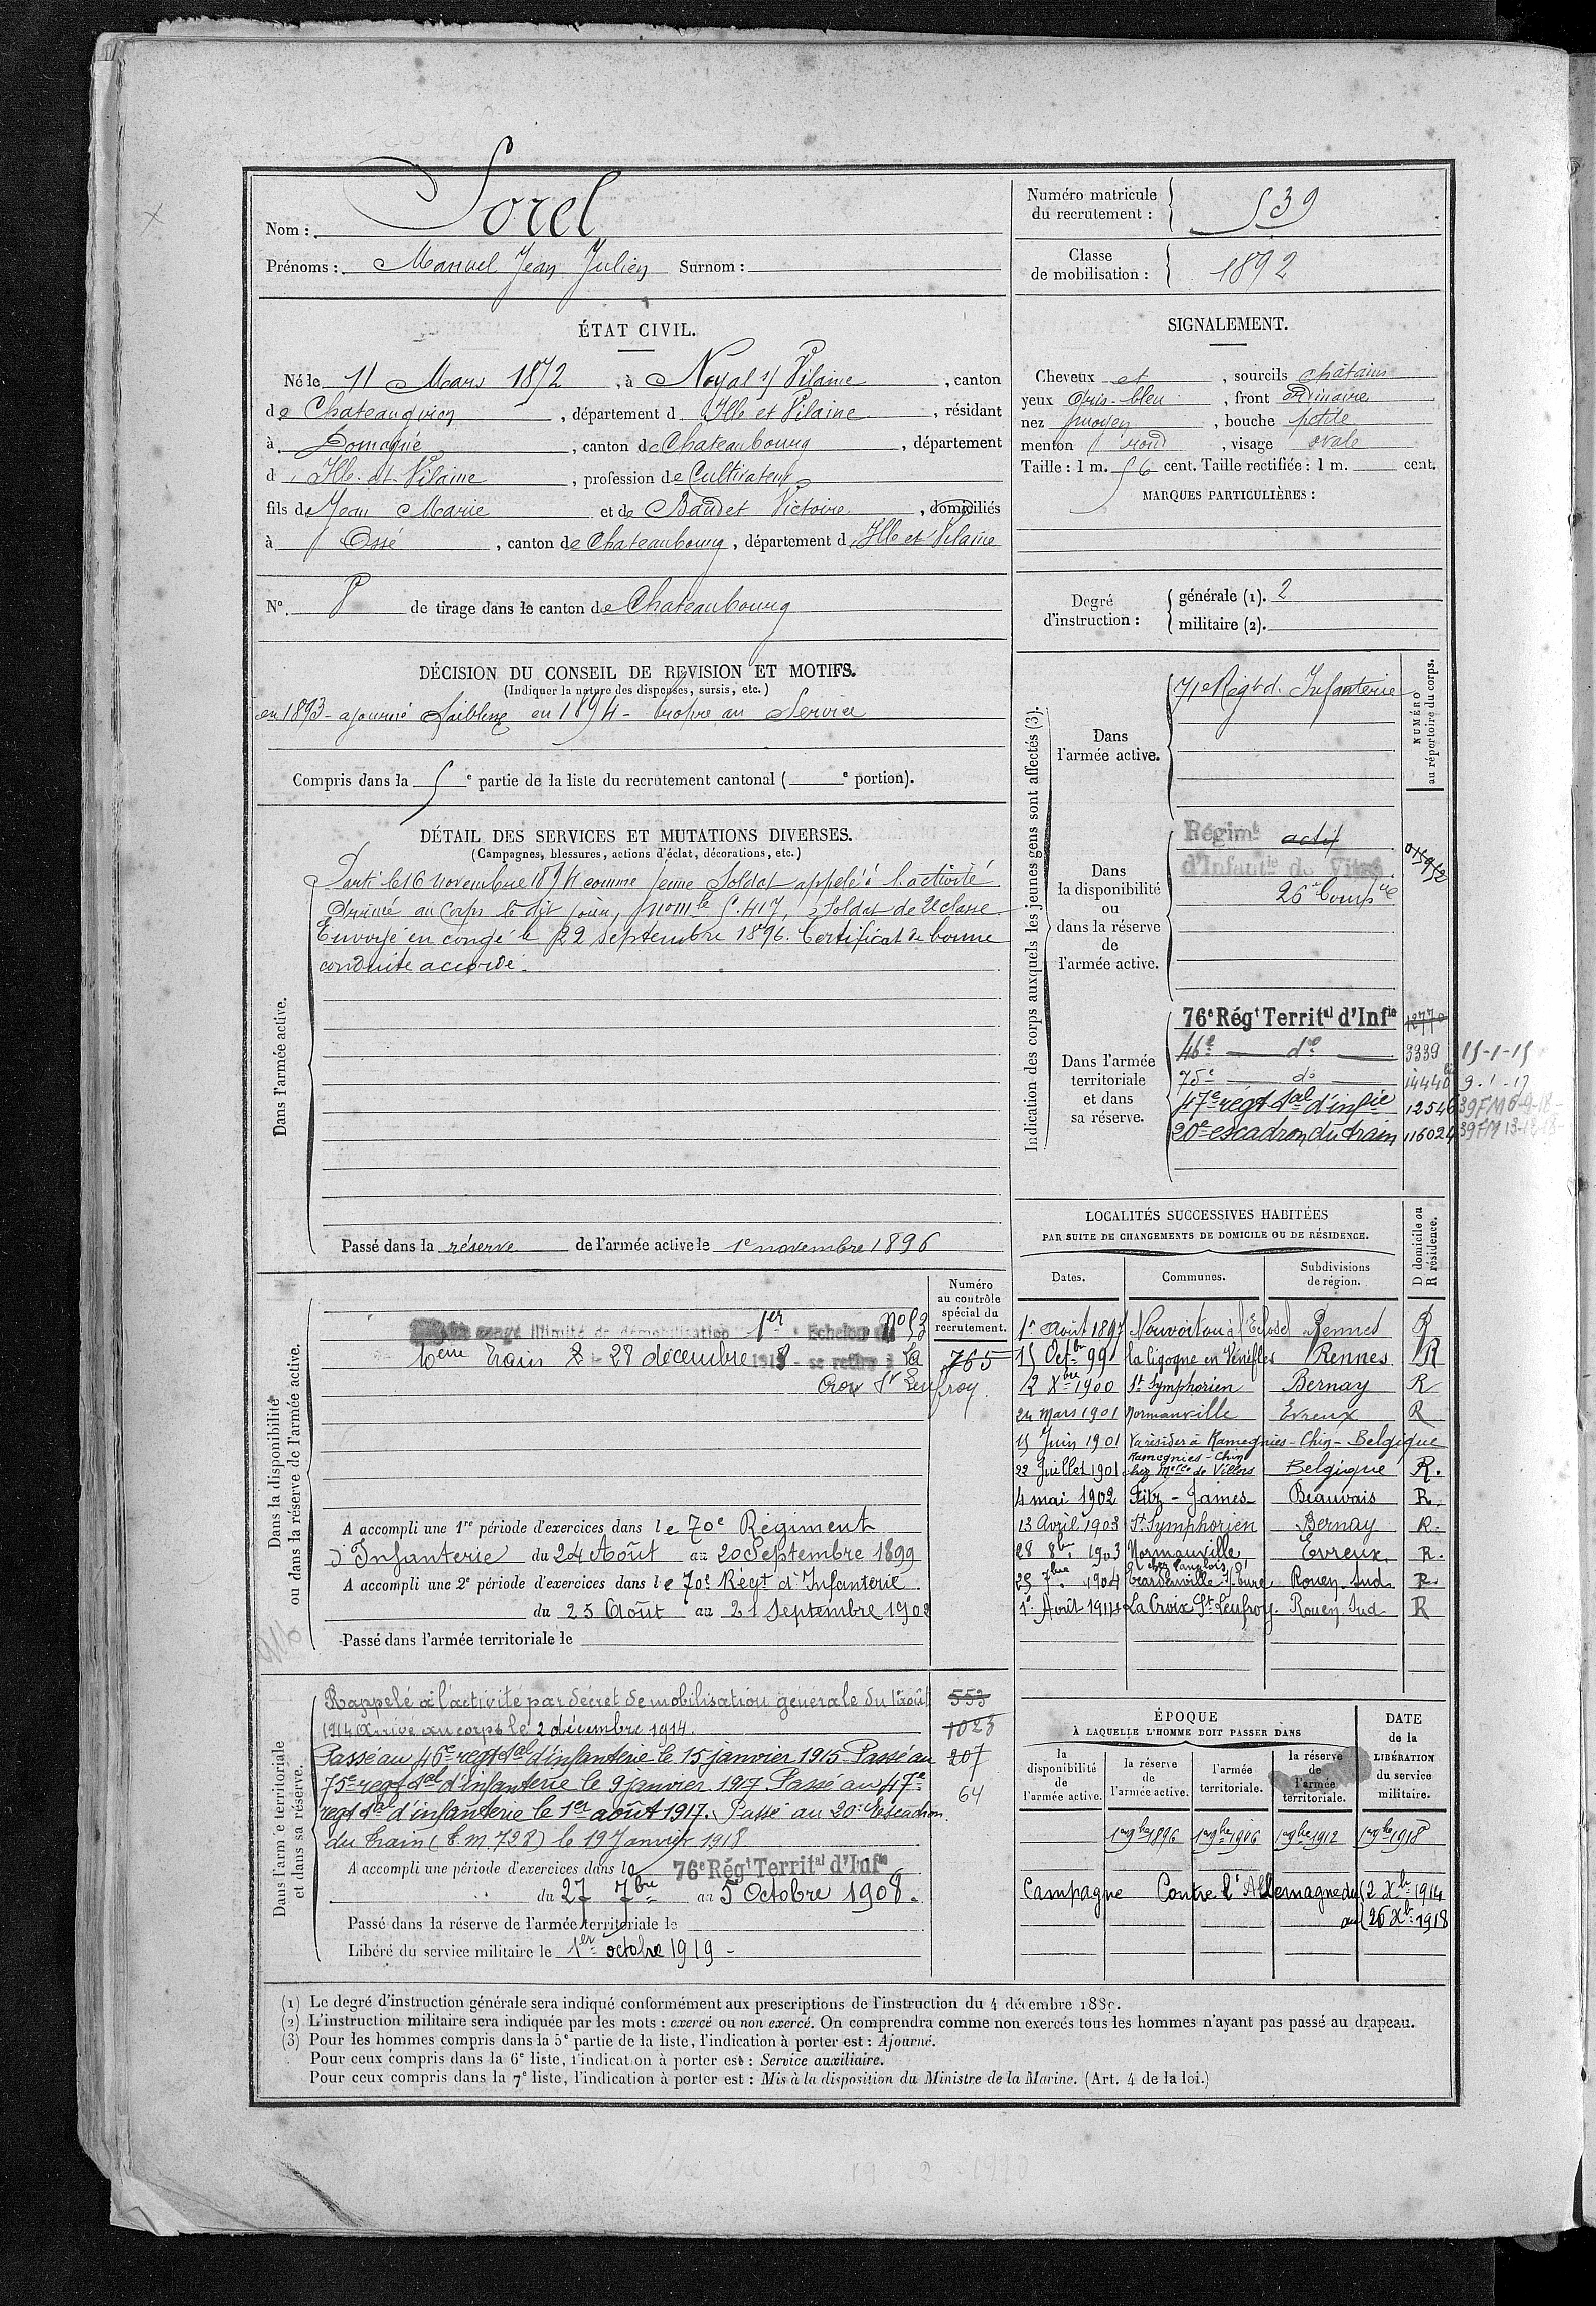 Nom : Sorel
Prénoms : Manuel Jean Julien Surnom :
Numéro matricule du recrutement : 539
Classe de mobilisation : 1892
ÉTAT CIVIL.
Né le 11 Mars 1872, à Noyal s/ Vilaine, canton
de Chateaugiron, département d Ille et Vilaine, résidant
à Domagné, canton de Chateaubourg, département
d Ille-et-Vilaine, profession de Cultivateur
fils de Jean Marie et de Baudet Victoire, domiciliés
à Ossé, canton de Chateaubourg, département d Ille et Vilaine
SIGNALEMENT.
Cheveux et, sourcils châtains
yeux Gris-bleu, front ordinaire
nez moyen, bouche petite
menton rond, visage ovale
Taille : 1 m. 56 cent. Taille rectifiée : 1 m. cent.
MARQUES PARTICULIÈRES :
N° 8 de tirage dans le canton de Chateaubourg
Degré d'instruction : générale (1). 2
militaire (2).
DÉCISION DU CONSEIL DE REVISION ET MOTIFS.
(Indiquer la nature des dispenses, sursis, etc.)
en 1893 - ajourné faiblesse en 1894 - Propre au Service
Compris dans la 5e partie de la liste du recrutement cantonal ( e portion).
DÉTAIL DES SERVICES ET MUTATIONS DIVERSES.
(Campagnes, blessures, actions d'éclat, décorations, etc.)
Dans l'armée active.
Parti le 16 novembre 1894 comme jeune Soldat appelé à l'activité
Arrivé au Corps le dit jour, n° mle 5.417, Soldat de 2e classe.
Envoyé en congé le 22 septembre 1896. Certificat de bonne
conduite accordé.
Passé dans la réserve de l'armée active le 1e novembre 1896
Indication des corps auxquels les jeunes gens sont affectés (3).
NUMÉRO au répertoire du corps.
Dans l'armée active.
71e Régt d'Infanterie
Dans la disponibilité ou dans la réserve de l'armée active.
Régimt actif
d'Infantie de Vitré
26e Compie
Dans l'armée territoriale et dans sa réserve.
76e Régt Territal d'Infie 1277
46e do 3339 15-1-15
75e do 14440 9-1-17
47e régt tal d'infie 12546 39FM 6-9-18
20e escadron du train 116024 39FM 13-12-18
LOCALITÉS SUCCESSIVES HABITÉES
PAR SUITE DE CHANGEMENTS DE DOMICILE OU DE RÉSIDENCE.
Dates. Communes. Subdivisions de région. D domicile ou R résidence.
1r Août 1897 Nouvoitou à l'Eclosel Rennes R
15 Octbr 99 la ligogne en Venèfles Rennes R
12 Xbre 1900 St Symphorien Bernay R
24 mars 1901 Normanville Evreux R
15 Juin 1901 Va résider à Ramegnies-Chin-Belgique
22 Juillet 1901 Ramegnies-Chin chez Melle de Villers Belgique R.
4 mai 1902 Fitz-James Beauvais R.
13 Avril 1903 St Symphorien Bernay R.
28 8bre 1903 Normanville Evreux R.
25 7bre 1904 s/ Eure Rouen Sud R
1r Août 1914 La Croix St Leufroy. Rouen Sud R
Dans la disponibilité ou dans la réserve de l'armée active.
Numéro au contrôle spécial du recrutement.
congé illimité de démobilisation 1er Echelon n° 53
10eme Train le 28 décembre 1918 - se retire à La
Croix St Leufroy.
765
A accompli une 1re période d'exercices dans le 70e Régiment
d'Infanterie du 24 Août au 20 Septembre 1899
A accompli une 2e période d'exercices dans le 70e Régt d'Infanterie
du 25 Août au 21 Septembre 1902
Passé dans l'armée territoriale le
Dans l'armée territoriale et dans sa réserve.
Rappelé à l'activité par décret de mobilisation générale du 1er août
1914 Arrivé au corps le 2 décembre 1914.
Passé au 46e regt tal d'infanterie le 15 janvier 1915 Passé au
75e regt tal d'infanterie le 9 janvier 1917. Passé au 47e
regt tal d'infanterie le 1er août 1917. Passé au 20e Escadron
du Train (T.M. 728) le 19 Janvier 1918
553
1023
207
64
A accompli une période d'exercices dans le 76e Régt Territal d'Infie
du 27 7bre au 5 Octobre 1908.
Passé dans la réserve de l'armée territoriale le
Libéré du service militaire le 1er octobre 1919 -
ÉPOQUE
À LAQUELLE L'HOMME DOIT PASSER DANS
la disponibilité de l'armée active.
la réserve de l'armée active.
l'armée territoriale.
la réserve de l'armée territoriale.
DATE de la LIBÉRATION du service militaire.
1er 9bre 1896 1er 9bre 1906 1er 9bre 1912 1er 8bre 1918
Campagne Contre l'Allemagne du 2 Xbr 1914
au 26 Xbr 1918
(1) Le degré d'instruction générale sera indiqué conformément aux prescriptions de l'instruction du 4 décembre 1889.
(2) L'instruction militaire sera indiquée par les mots : exercé ou non exercé. On comprendra comme non exercés tous les hommes n'ayant pas passé au drapeau.
(3) Pour les hommes compris dans la 5e partie de la liste, l'indication à porter est : Ajourné.
Pour ceux compris dans la 6e liste, l'indication à porter est : Service auxiliaire.
Pour ceux compris dans la 7e liste, l'indication à porter est : Mis à la disposition du Ministre de la Marine. (Art. 4 de la loi.)